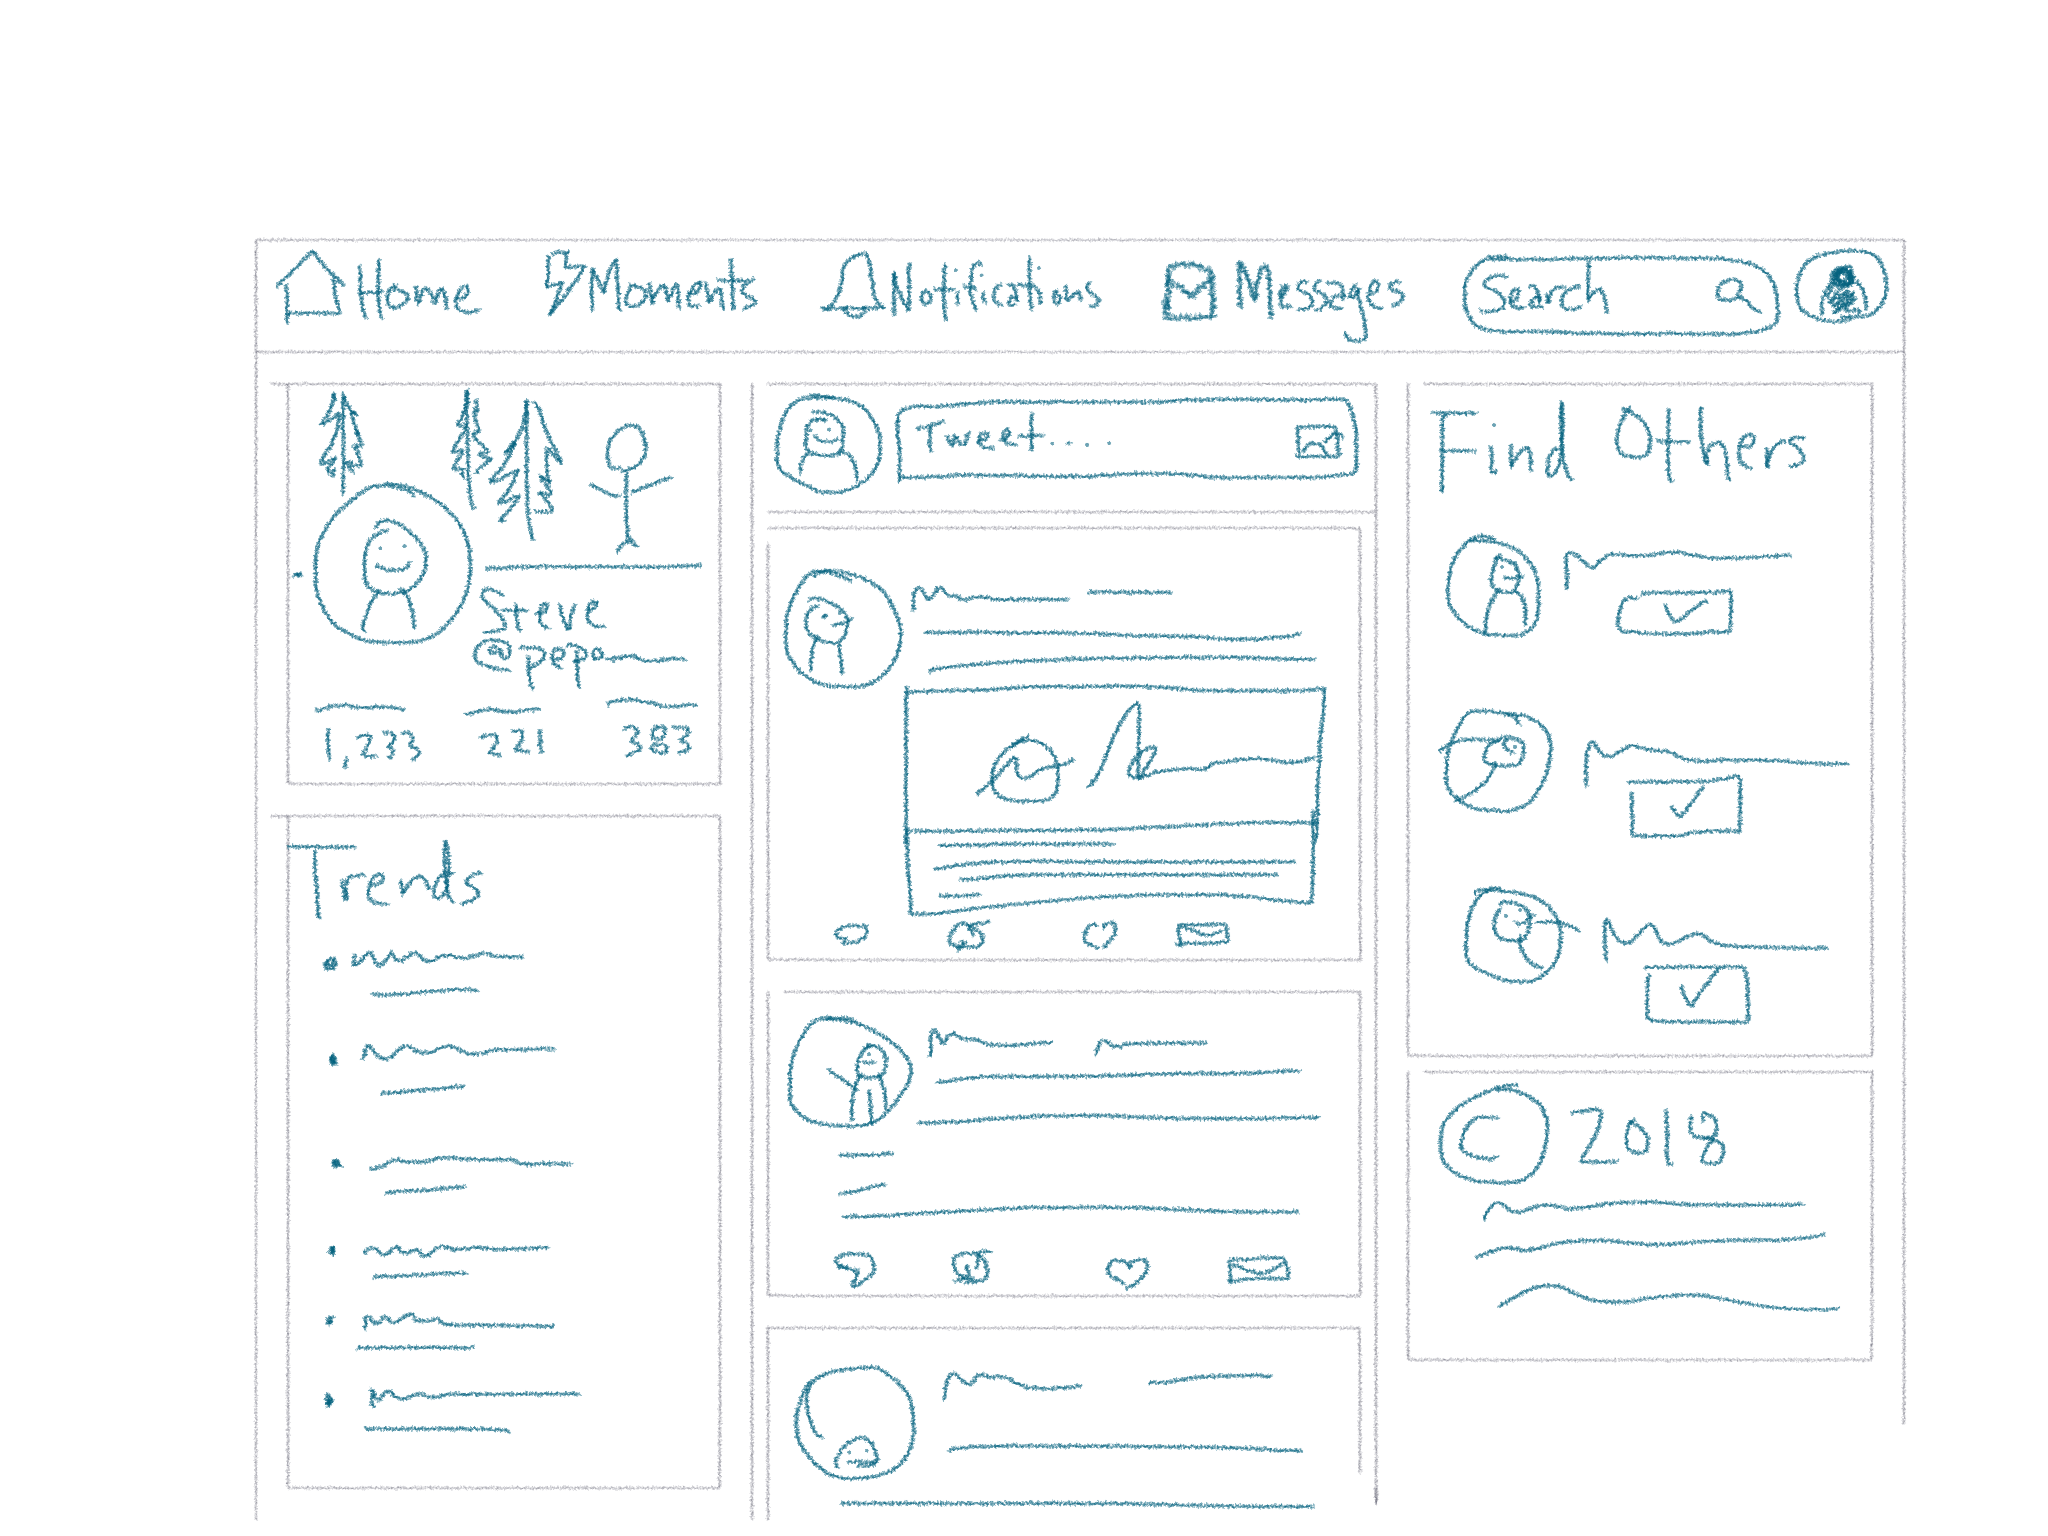 Home Moments Notifications Messages Search
Steve
@pepo
1,233 221 383
Trends
Tweet....
Find Others
© 2018